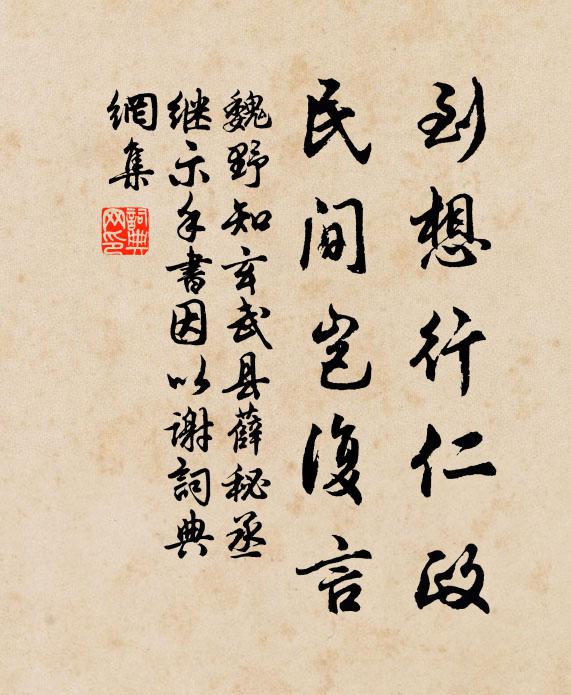 到想行仁政
民间岂復言
魏野知玄武县薛秘丞
继示手书因以谢詞典
網集
詞典网印